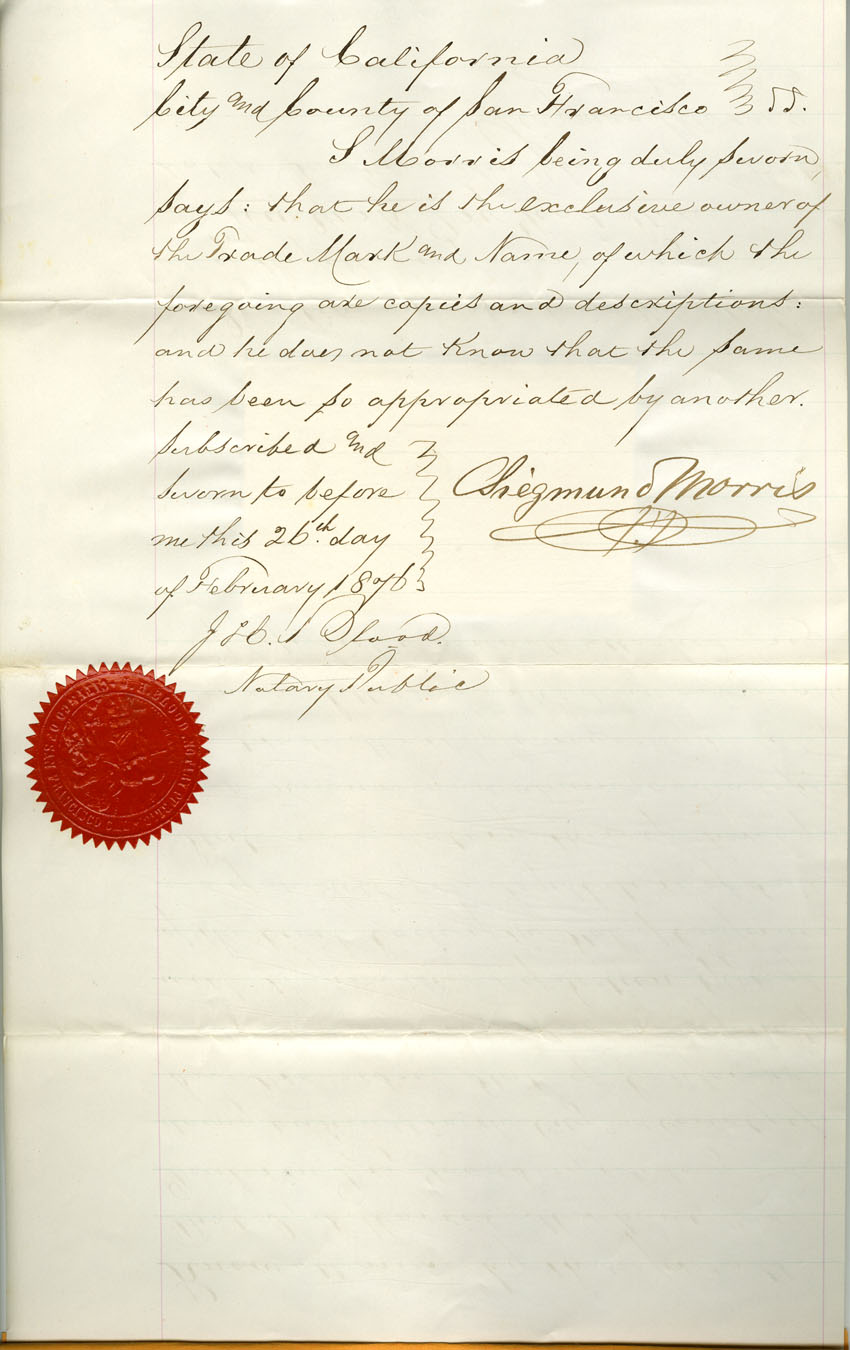 State of California
City and County of San Francisco ss.
S Morris being duly sworn,
says: that he is the exclusive owner of
the Trade Mark and Name, of which the
foregoing are copies and descriptions:
and he does not know that the same
has been so appropriated by another.
Subscribed and
sworn to before
me this 26th day
of February 1876
Siegmund Morris
Blood.
Notary Public